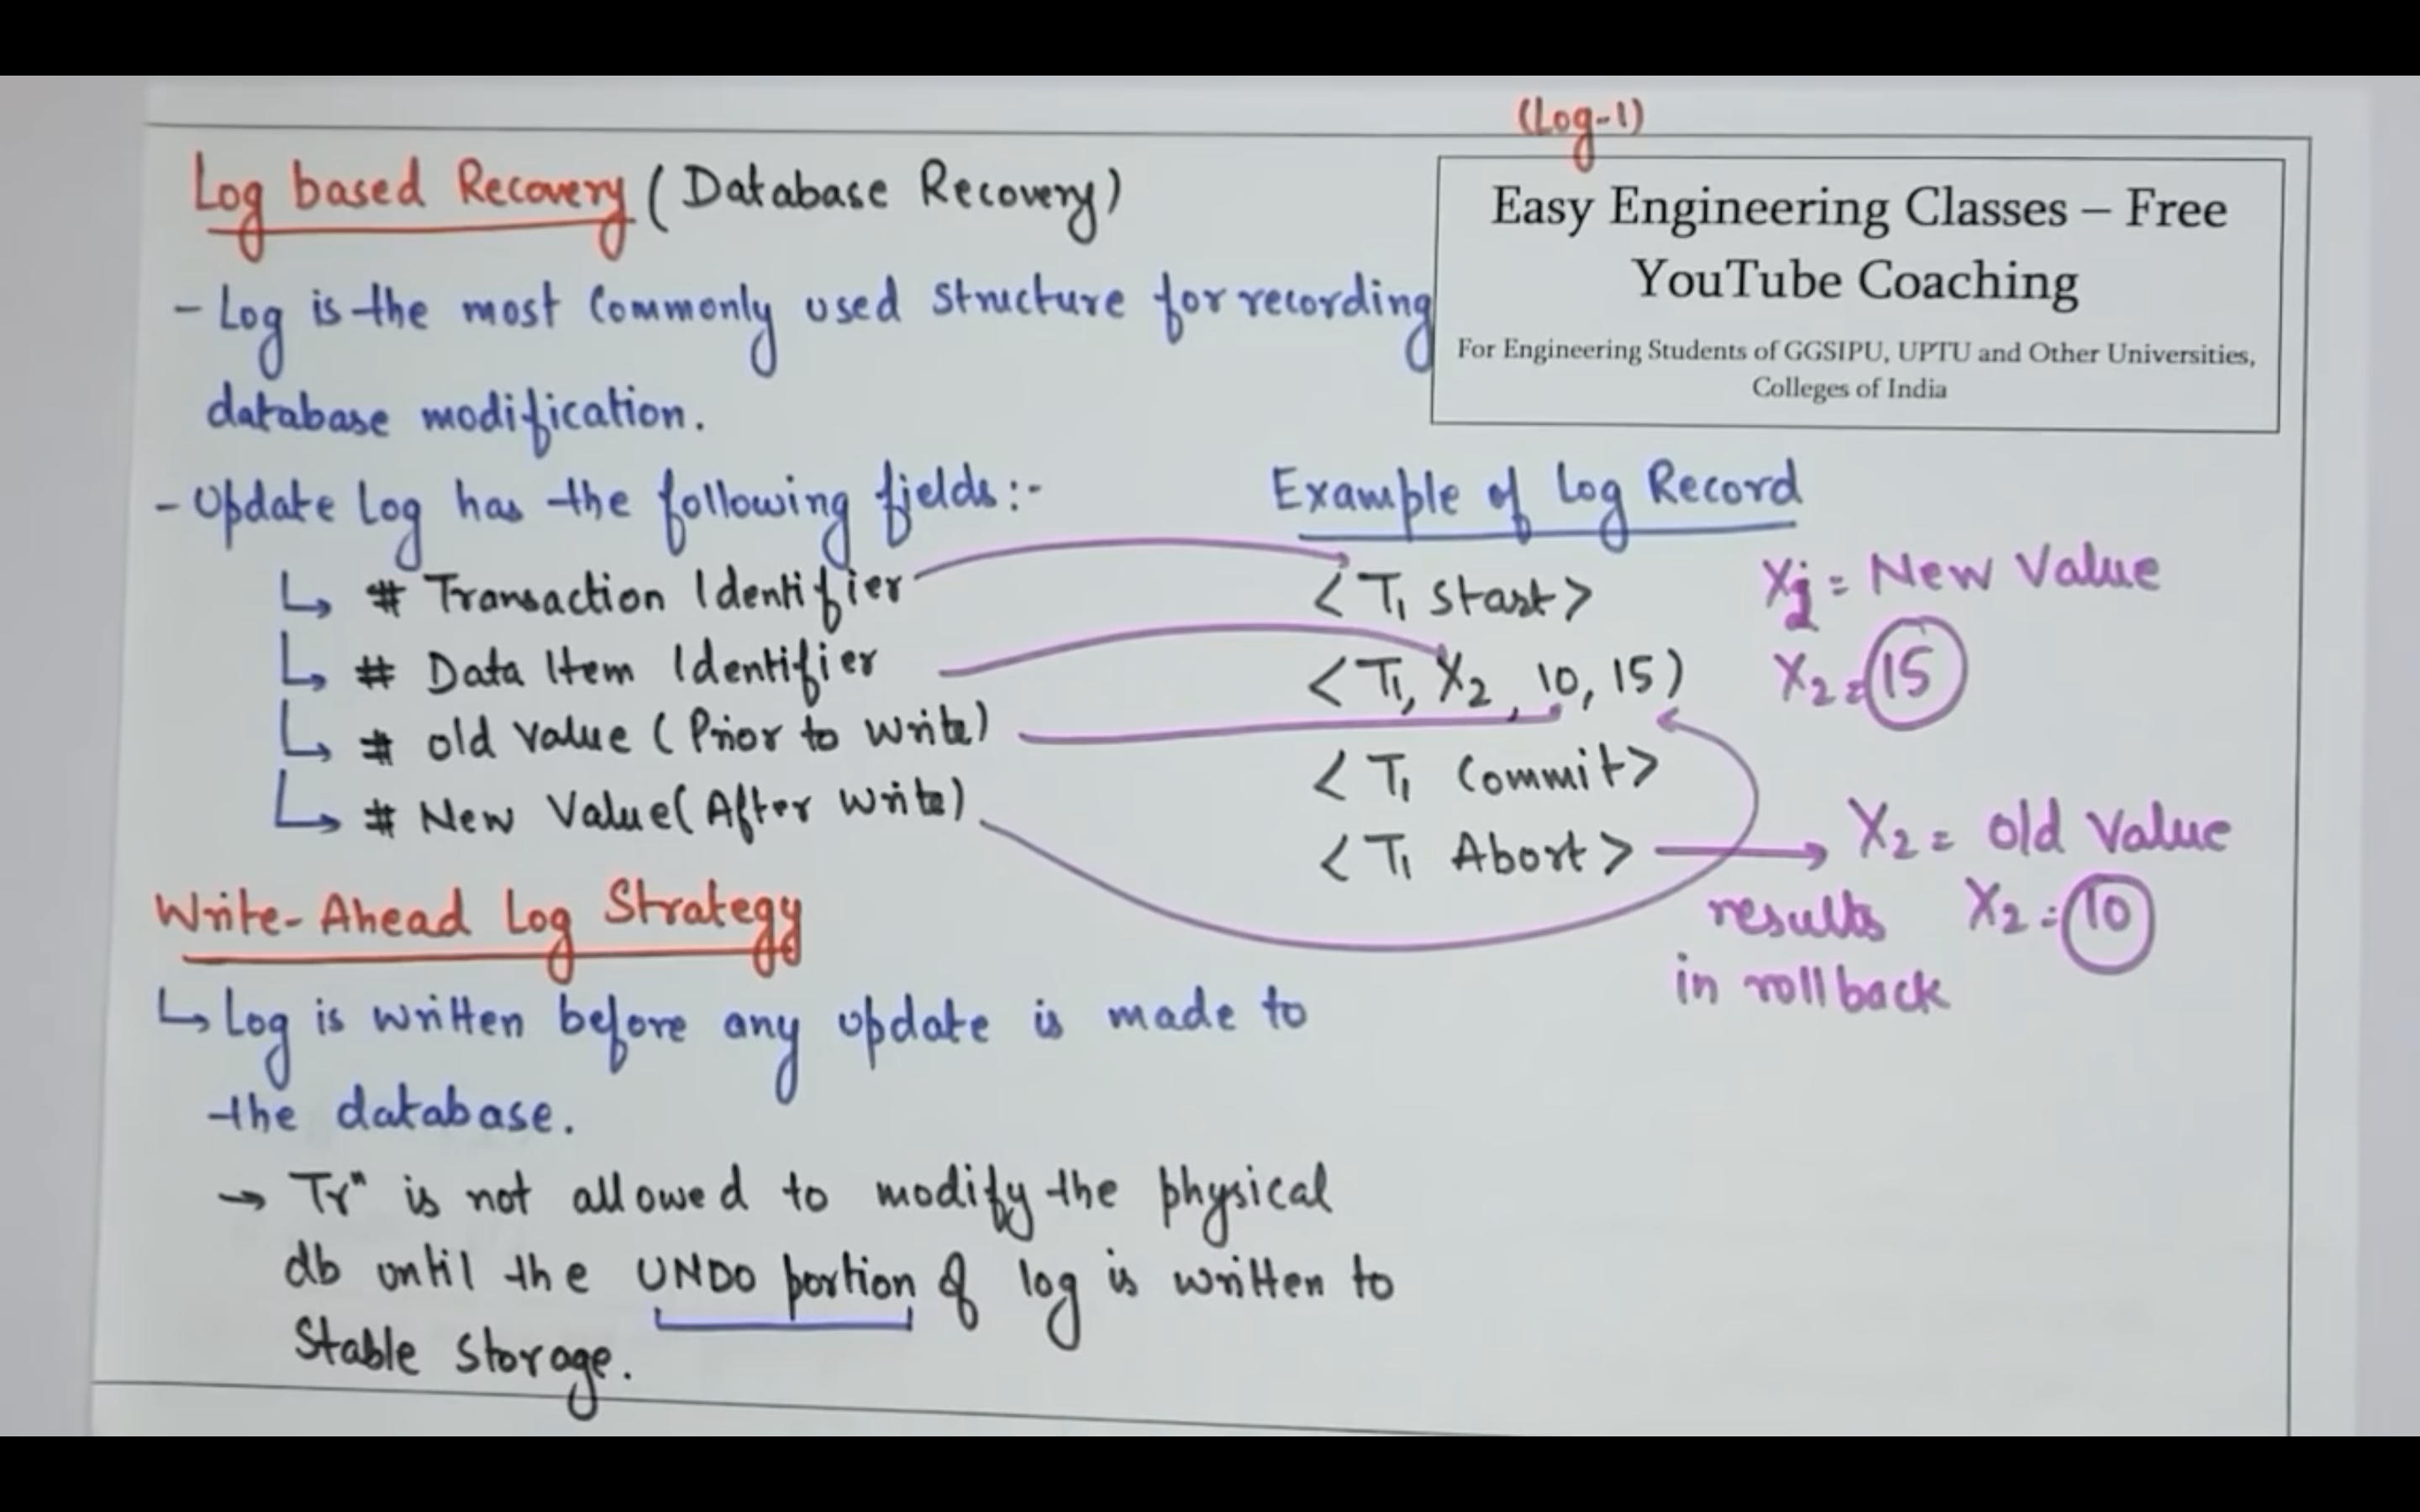 (Log-1)
Log based Recovery (Database Recovery)
Easy Engineering Classes – Free
YouTube Coaching
For Engineering Students of GGSIPU, UPTU and Other Universities,
Colleges of India
- Log is the most Commonly used Structure for recording
database modification.
- Update Log has the following fields :-
↳ # Transaction Identifier
↳ # Data Item Identifier
↳ # old value (Prior to write)
↳ # New Value (After write)
Example of Log Record
<T1 start>
<T1, X2, 10, 15)
<T1 Commit>
<T1 Abort>
Xj = New Value
X2 = 15
→ X2 = old value
results X2 = 10
in rollback
Write-Ahead Log Strategy
↳ Log is written before any update is made to
the database.
→ Trⁿ is not allowed to modify the physical
db until the UNDO portion of log is written to
Stable storage.